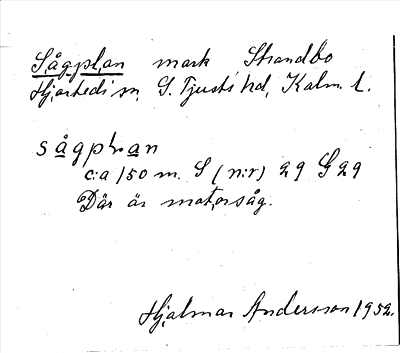 Sågplan mark Strandbo
Hjorteds sn, S. Tjusts hd, Kalm. l.
sågplan
c:a 150 m. S (n:r) 29 G 29
Där är motorsåg.
Hjalmar Andersson 1952.